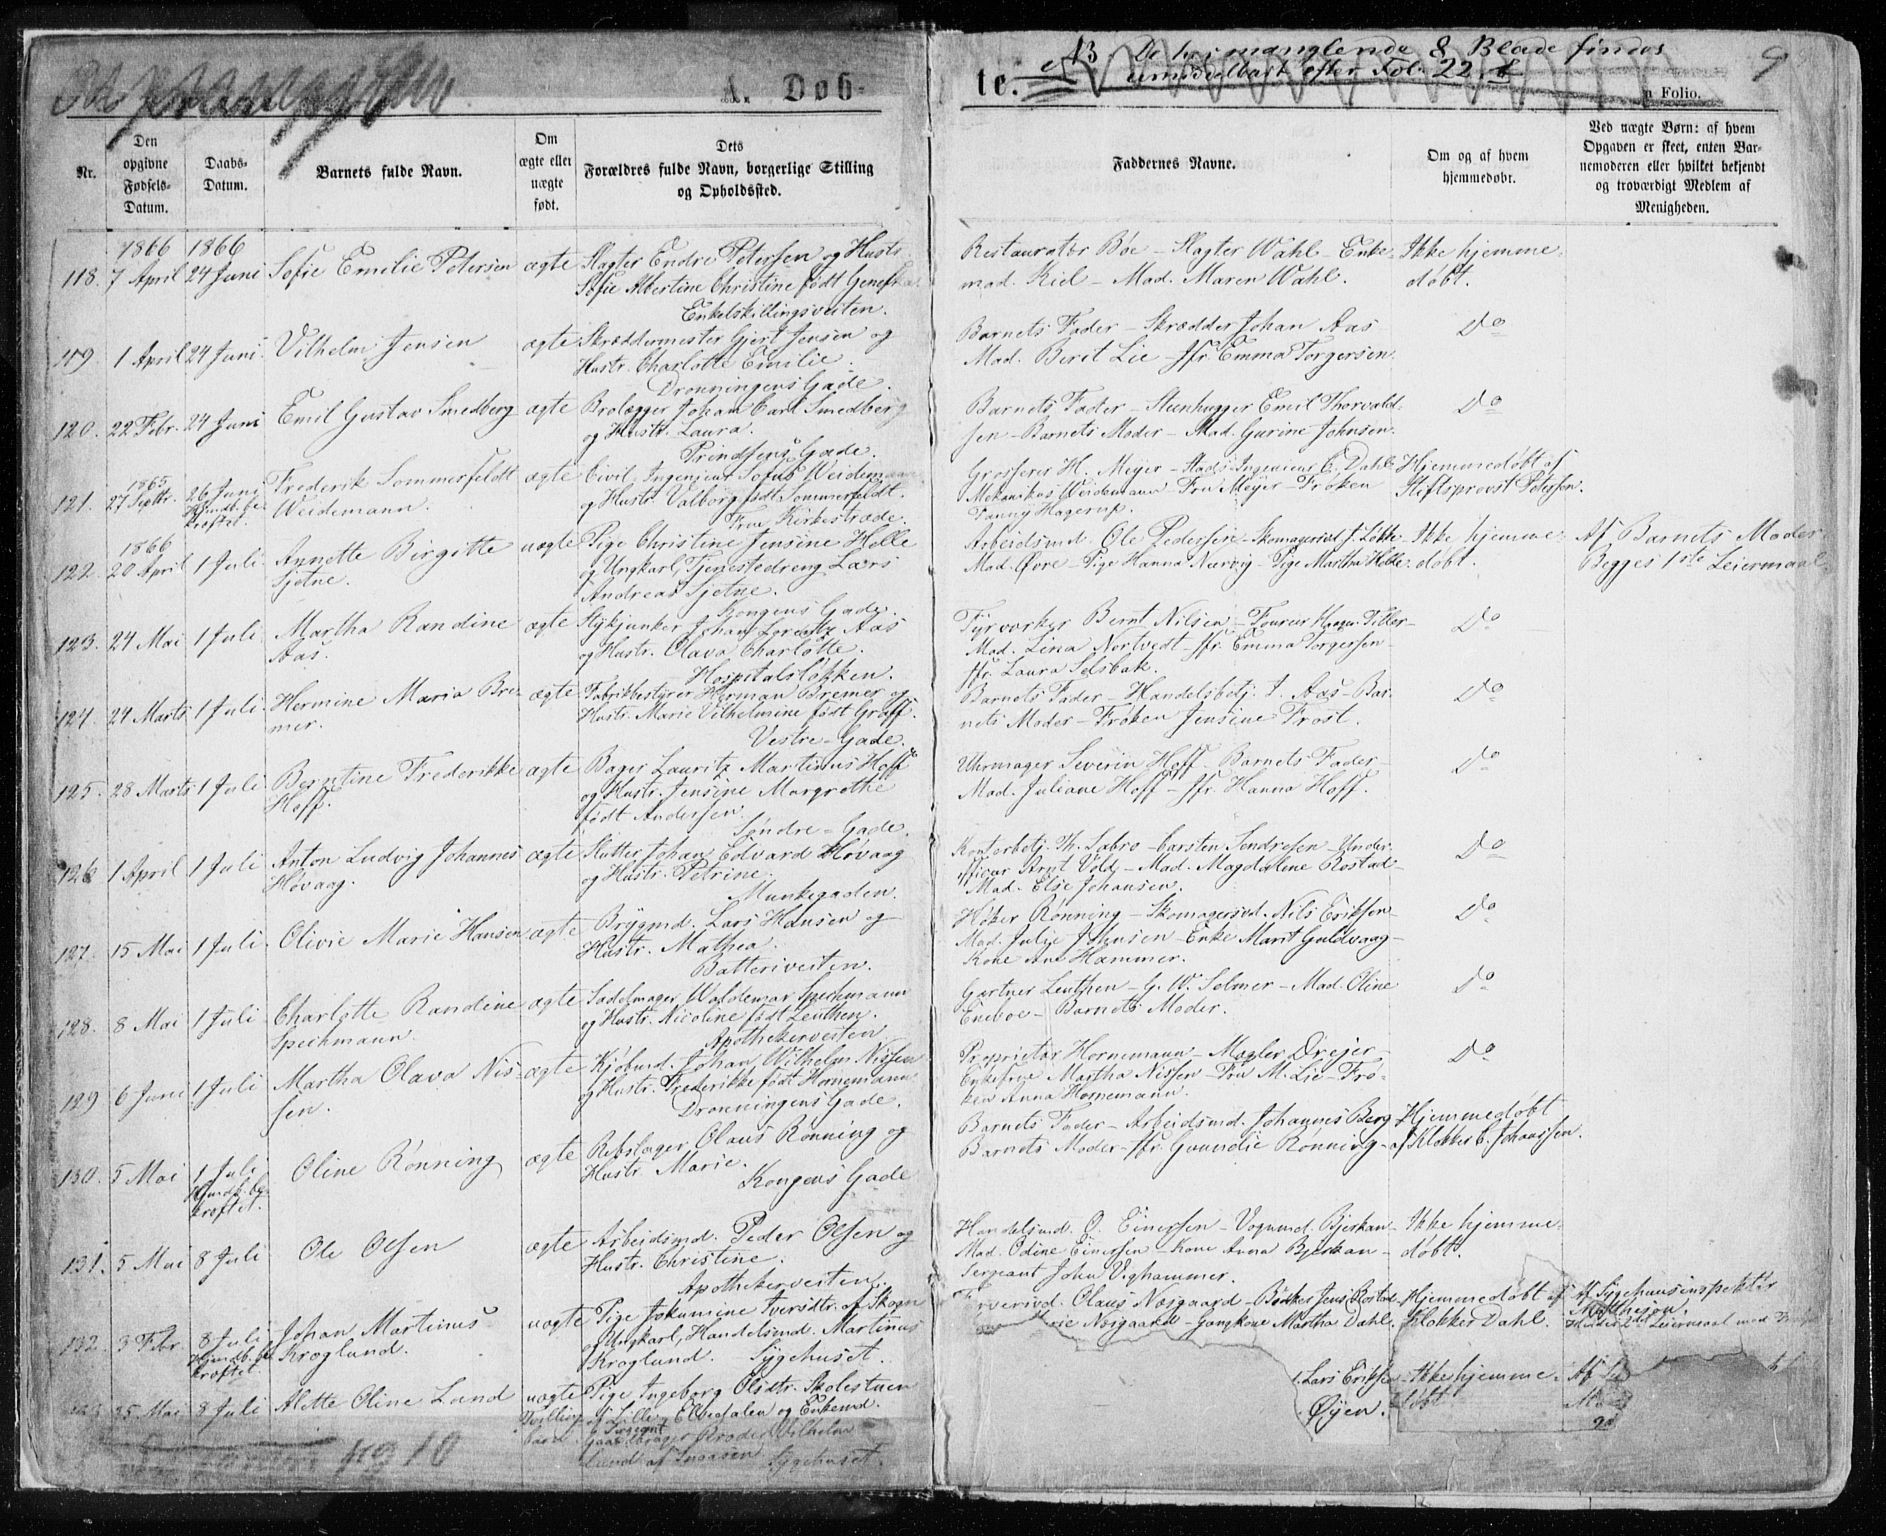 A. Døb-
te.
NB De her manglende 8 Blade findes
umiddelbart efter Fol. 22.
9
Folio.
Nr.
Den opgivne Fødsels-Datum.
Daabs-Datum.
Barnets fulde Navn.
Om ægte eller uægte født.
Dets Forældres fulde Navn, borgerlige Stilling og Opholdssted.
Faddernes Navne.
Om og af hvem hjemmedøbt.
Ved uægte Børn: af hvem Opgaven er skeet, enten Barnemoderen eller hvilket bekjendt og troværdigt Medlem af Menigheden.
1866 1866
118. 7 April 24 Juni Sofie Emilie Petersen ægte Slagter Endre Petersen og Hustr.
Sofie Albertine Christine født
Enkelskillingsveiten.
Restauratør Bøe – Slagter Wahl – Enke-
mad. Kiel – Mad. Maren Wahl.
Ikke hjemme-
døbt.
119. 1 April 24 Juni Vilhelm Jensen ægte Skræddermester Gjert Jensen og
Hustr. Charlotte Emilie.
Dronningens Gade.
Barnets Fader – Skrædder Johan Aas –
Mad. Berit Lie – Jfr. Emma Torgersen.
Do
120. 22 Febr. 24 Juni Emil Gustav Smedberg ægte Brolægger Johan Carl Smedberg
og Hustr. Laura.
Prindsens Gade.
Barnets Fader – Steenhugger Emil Thorvald-
sen – Barnets Moder – Mad. Gurine Johnsen.
Do
1865
121. 27 Septbr. 26 Juni Hjmdb. be-
kræftet. Frederik Sommerfeldt
Weidemann. ægte Civil Ingenieur Sofus Weidemann
og Hustr. Valborg født Sommerfeldt.
Frue Kirkestræde.
Grosserer H. Meyer – Stads Ingenieur C. Dahl
Mekanikus Weidemann Fru Meyer Frøken
Fanny Hagerup.
Hjemmedøbt af
Stiftsprovst Petersen.
1866
122. 20 April 1 Juli Annette Birgitte
Sjetne. uægte Pige Christine Jensine Holle
og Ungkarl, Tjenestedreng Lars
Andreas Sjetne.
Kongens Gade.
Arbeidsmd. Ole Pedersen – Skomagersvd J. Løkke
Mad. Øvre – Pige Hanna Nærvig – Pige Martha Holle
Ikke hjemme-
døbt.
Af Barnets Moder
Begges 1ste Leiermaal.
123. 24 Mai 1 Juli Martha Randine
Aas. ægte Stykjunker Johan Lorentz Aas
og Hustr. Olava Charlotte.
Hospitalsløkken.
Fyrværker Bernt Nilsen – Fourer Hagen Tiller –
Mad. Lina Nortvedt – Jfr. Emma Torgersen –
Jfr. Laura Selsbak.
Do
124. 24 Marts 1 Juli Hermine Maria Bre-
mer. ægte Fabrikbestyrer Herman Bremer og
Hustr. Marie Vilhelmine født Gräff.
Vestre-Gade.
Barnets Fader – Handelsbetj. J. Aas – Bar-
nets Moder – Frøken Jensine Frost.
Do
125. 28 Marts 1 Juli Berntine Frederikke
Hoff. ægte Bager Lauritz Martinus Hoff
og Hustr. Jensine Margrethe
født Andersen.
Søndre-Gade.
Uhrmager Severin Hoff – Barnets Fader –
Mad. Juliane Hoff – Jfr. Hanna Hoff.
Do
126 1 April 1 Juli Anton Ludvig Johannes
Høvaag. ægte Slutter Johan Edvard Høvaag
og Hustr. Petrine.
Munkegaden.
Kontorbetj. Th. Sabro – Carsten Sendresen – Under-
officer Arnt Vold – Mad. Magdalene Rostad –
Mad. Else Johansen.
Do
127. 15 Mai 1 Juli Olivie Marie Hansen ægte Brygmd. Lars Hansen og
Hustr. Mathea.
Batteriveiten.
Høker Rønning – Skomagersvd. Nils Eriksen –
Mad. Julie Johnsen – Enke Marit Guldvaag –
Kone Ane Hammer.
Do
128. 8 Mai 1 Juli Charlotte Randine
Spechmann. ægte Sadelmager Waldemar Spechmann
og Hustr. Nicoline født Leuthen.
Apothekerveiten
Gartner Leuthen – G. W. Selmer – Mad. Oline
Eneboe – Barnets Moder.
Do
129 6 Juni 1 Juli Martha Olava Nis-
sen. ægte Kjøbmd. Johan Wilhelm Nissen
og Hustr. Frederikke født Hornemann
Dronningens Gade.
Proprietær Hornemann – Mægler Drejer –
Enkefrue Martha Nissen – Fru M. Lie – Frø-
ken Anna Hornemann.
Do
130. 5 Mai 1 Juli
Hjmdb. be-
kræftet. Oline Rønning ægte Rebslager Olaus Rønning og
Hustr. Marie.
Kongens Gade
Barnets Fader – Arbeidsmd. Johannes Berg
Barnets Moder – Jfr. Rønning –
Hjemmedøbt
af Klokker C. Johanssen.
131. 5 Mai 8 Juli Ole Olsen ægte Arbeidsmd. Peder Olsen og
Hustr. Christine.
Apothekerveiten.
Handelsmd. O. Einersen – Vognmd. Bjerkan –
Mad. Odine Einersen – Kone Anna Bjerkan –
Sergeant John Vighammer.
Ikke hjemme-
døbt.
132. 3 Febr 8 Juli
Hjmdb. be-
kræftet. Johan Martinus
Kroglund. uægte Pige Jokumine Iversdtr. af Skogn
og Ungkarl, Handelsmd. Martinus
Kroglund. Sygehuset.
Olaus Næsgaard – Bødker Jens Rostad
Næsgaard – Gangkone Martha Dahl.
Hjemmedøbt af
Klokker Dahl.
Af Sygehusinspektør
Matheson.
Leiermaal med
25 Mai 8 Juli Alette Oline Lund uægte
Tvilling-
barn. Pige Ingeborg Olsdtr. Skolestuen
af Lille Elvedalen og Enkemd.
Lund af Sygehuset.
Lars Eriksen
Øyen.
Ikke hjemme-
døbt
Af
No 10